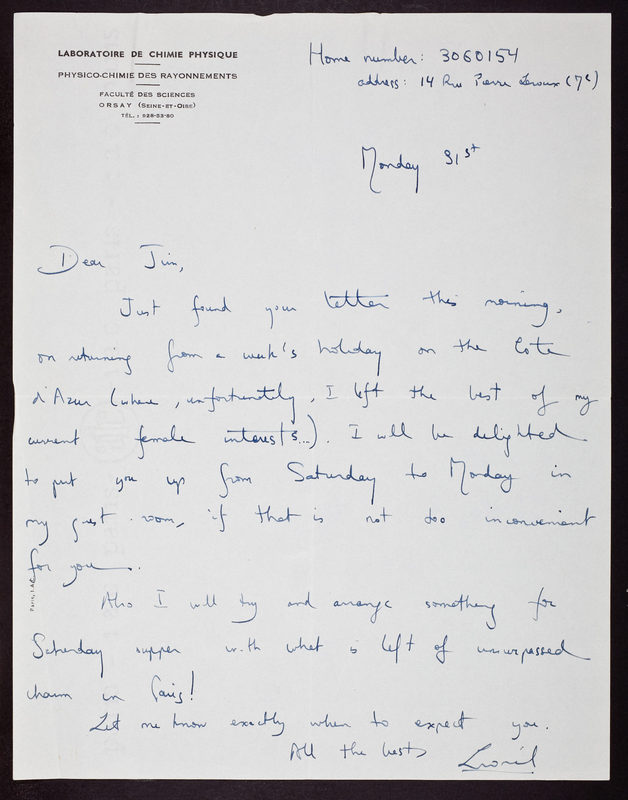 LABORATOIRE DE CHIMIE PHYSIQUE
PHYSICO-CHIMIE DES RAYONNEMENTS
FACULTÉ DES SCIENCES
ORSAY (SEINE-ET-OISE)
TÉL. : 928-53-80
Home number: 3060154
address: 14 Rue Pierre Leroux (7e)
Monday 31st
Dear Jim,
Just found your letter this morning,
on returning from a week's holiday on the Cote
d'Azur (where, unfortunately, I left the best of my
current female interests...). I will be delighted
to put you up from Saturday to Monday in
my guest room, if that is not too inconvenient
for you.
Also I will try and arrange something for
Saturday supper with what is left of unsurpassed
charm in Paris!
Let me know exactly when to expect you.
All the best